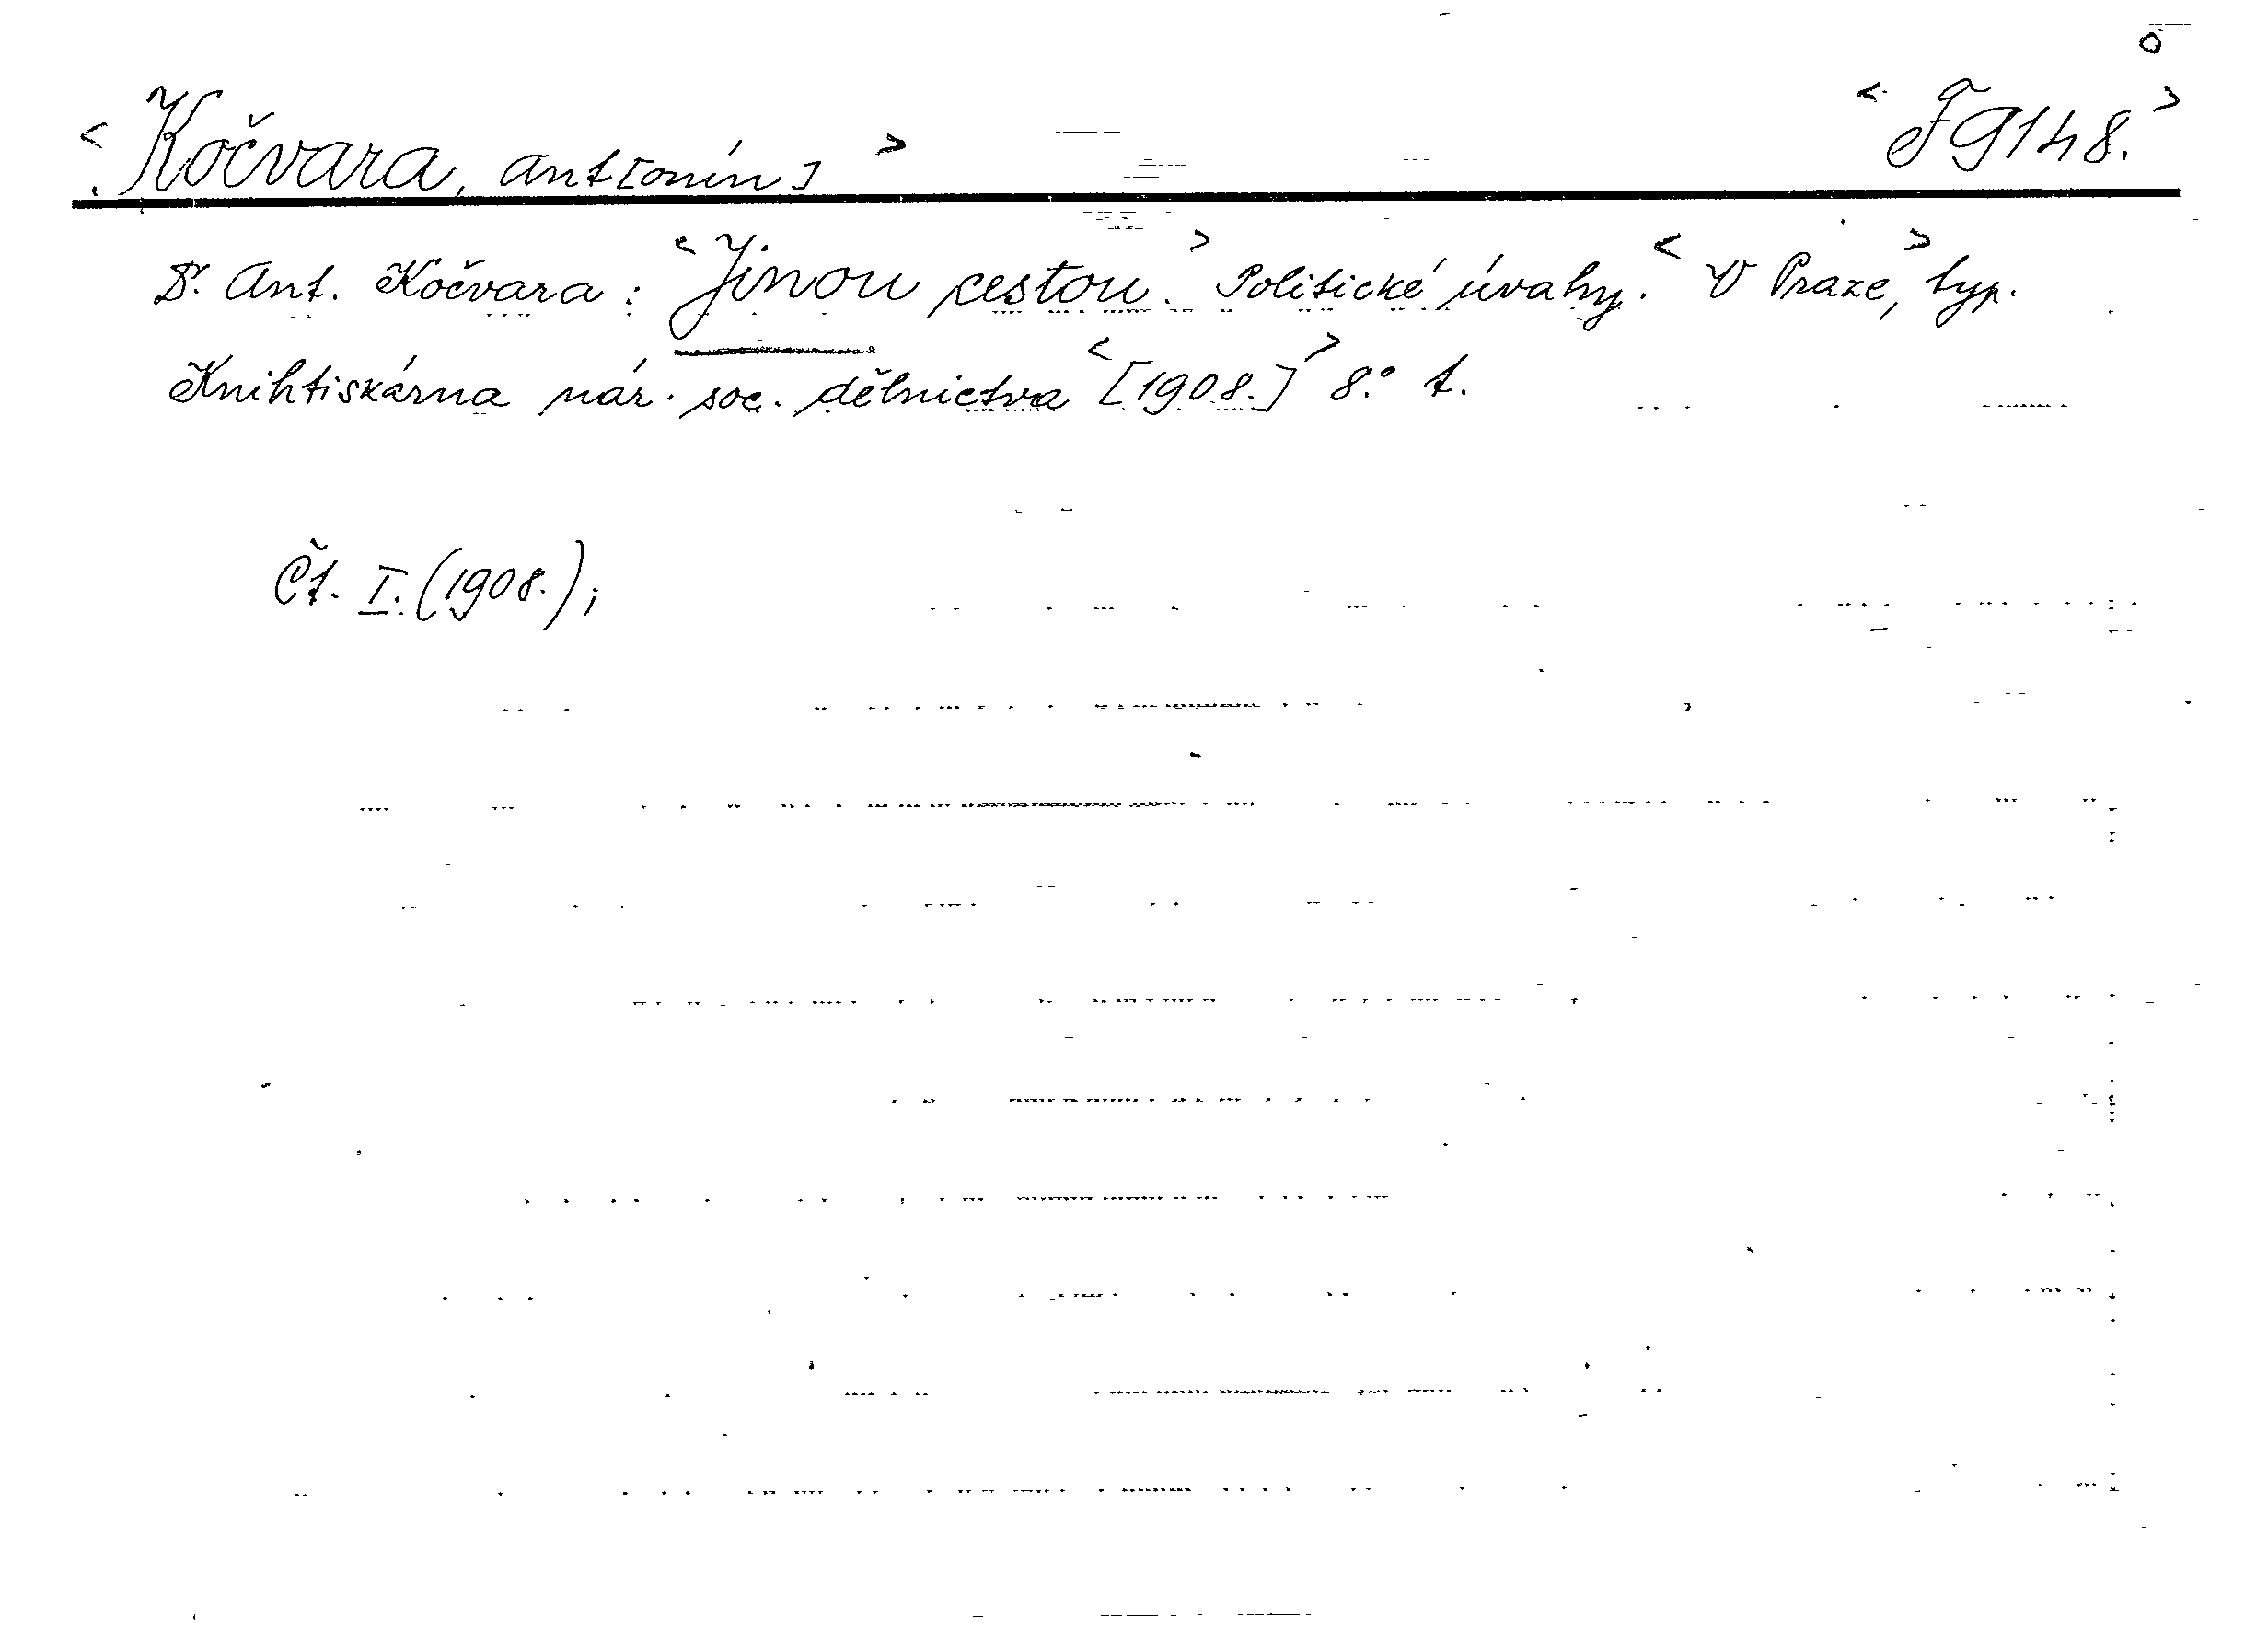 <Kočvara, Ant[onín]> <F 9148.>
Dr. Ant. Kočvara: <Jinou cestou.> Politické úvahy. <V Praze,> typ.
Knihtiskárna nár. soc. dělnictva <[1908.]> 8.° t.
Čt. I. (1908.);